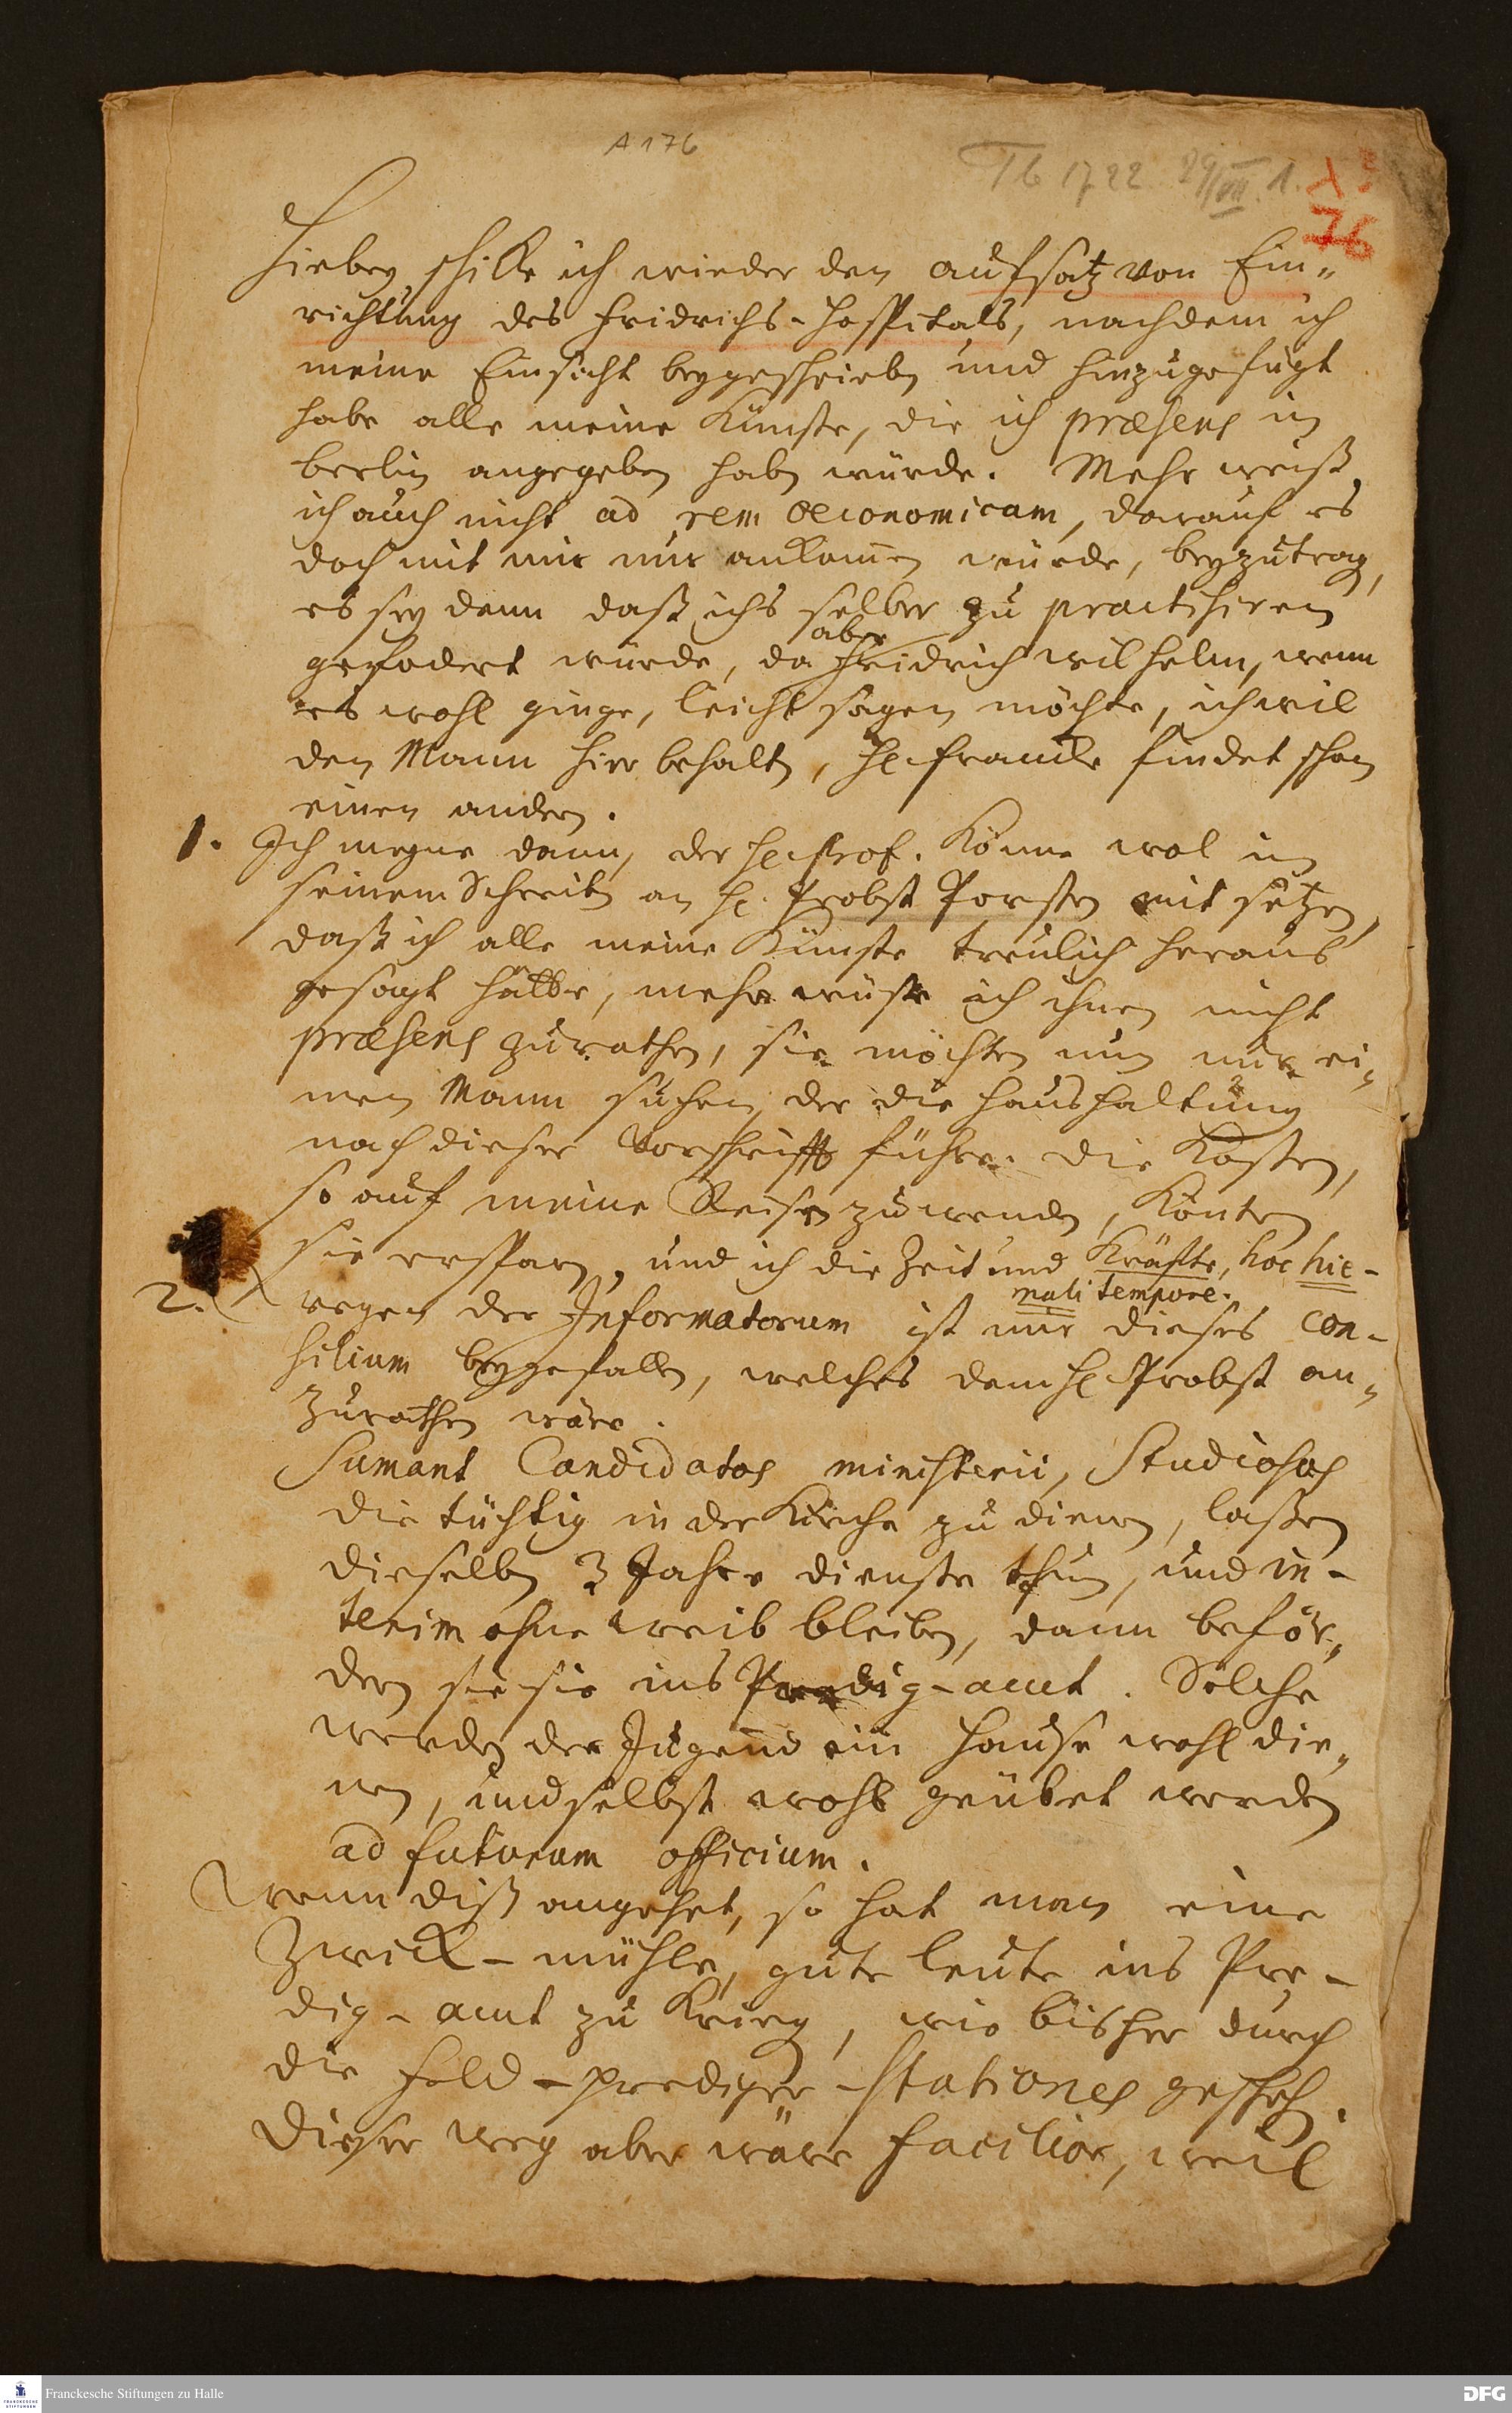 A 176
Tb 1722 29/VII. 1.
76
Hiebey schikke ich wieder den aufsatz von Ein„
richtung des Fridrichs-Hospitals, nachdem ich
meine Einsicht beygeschrieben und hinzugefügt
habe alle meine Künste, die ich præsens in
Berlin angegeben haben würde. Mehr weiß
ich auch nicht ad rem oeconomicam, darauf es
doch mit mir nur ankomen würde, beyzutragen,
es sey denn daß ichs selber zu practisiren
aber
gefodert würde, da Fridrich Wilhelm, wenn
es wohl ginge, leicht sagen möchte, ich wil
den Mann hier behalten, H. Francke findet schon
einen andern.
1. Ich meyne dann, der H. Prof. könne wol in
seinem Schreiben an H. Probst Porsten mit setzen,
daß ich alle meine Künste treulich heraus
gesagt hätte, mehr wüste ich ihnen nicht
præsens zurathen, sie möchten nun nur ei„
nen Mann suchen, der die Haushaltung
nach dieser Vorschrifft führe. Die Kosten,
so auf meine Reise zu wenden, könten
sie ersparen, und ich die Zeit und Kräfte, hoc hie-
mali tempore.
2. Wegen der Informatorum ist mir dieses con-
silium beygefallen, welches dem H. Probst an„
zurathen wäre.
Sumant Candidatos ministerii, Studiosos
die tüchtig in der Kirche zu dienen, laßen
dieselben 3 Jahre dienste thun, und in-
terim ohne Weib bleiben, dann beför„
dern sie sie ins Predig-amt. Solche
werden der Jugend im Hause wohl die„
nen, und selbst wohl geübet werden
ad futurum officium.
Wenn diß angehet, so hat man eine
Zwick-mühle, gute Leute ins Pre-
dig-amt zu kriegen, wie bisher durch
die Feld-prediger-Stationes geschehen.
Dieser Weg aber wäre facilior, weil
Franckesche Stiftungen zu Halle
DFG